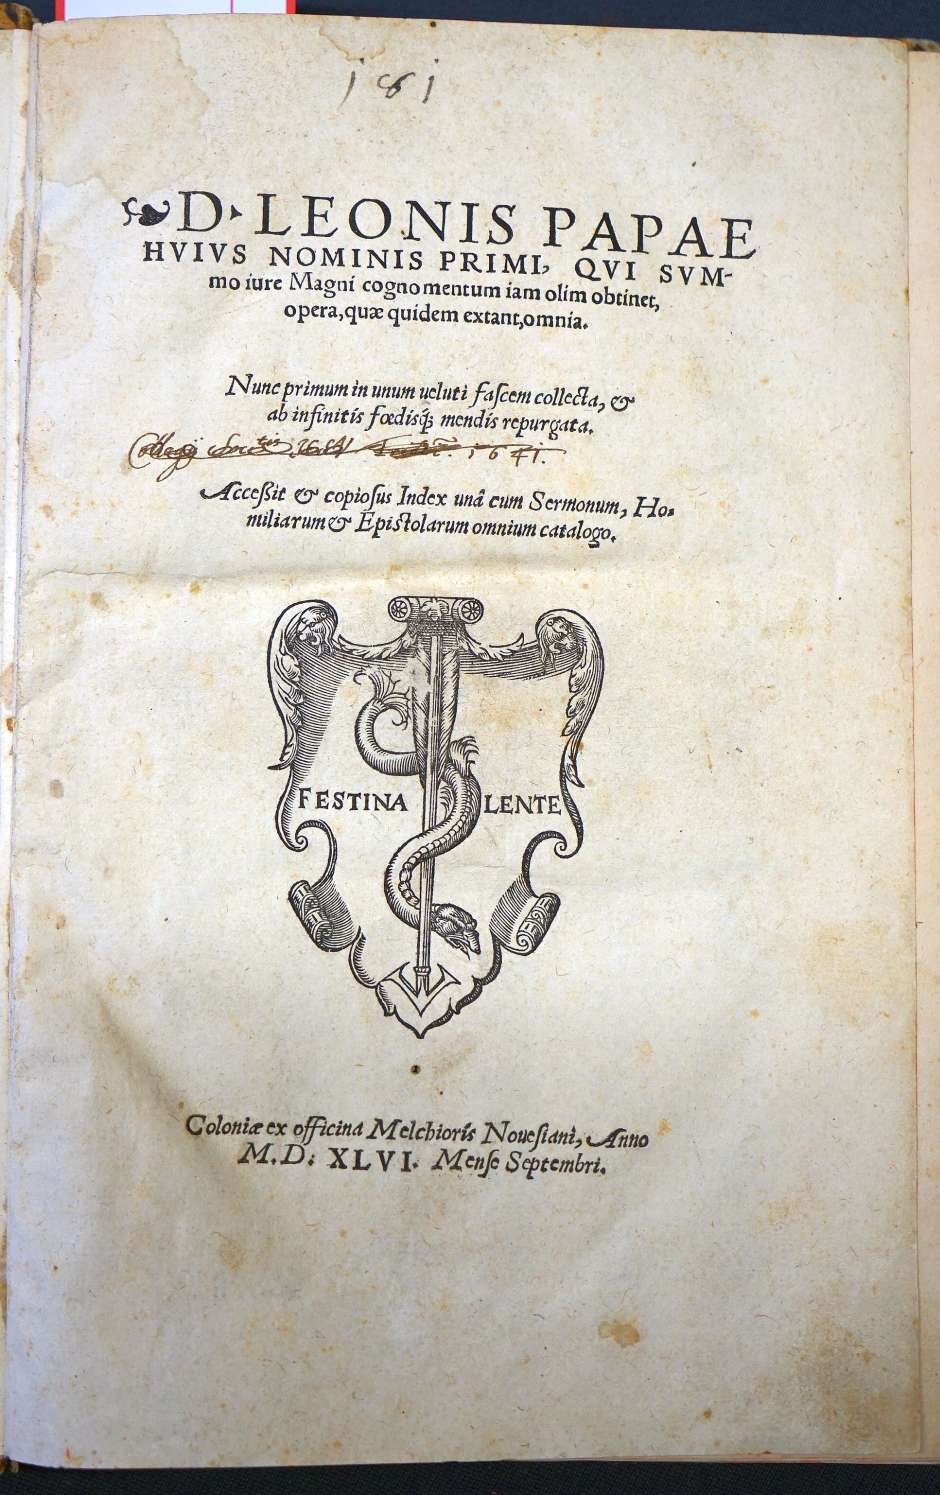 181
D. LEONIS PAPAE
HVIVS NOMINIS PRIMI, QVI SVM-
mo iure Magni cognomentum iam olim obtinet,
opera, quæ quidem extant, omnia.
Nunc primum in unum ueluti fascem collecta, &
ab infinitis fœdisq́; mendis repurgata.
Collegij Soctis 1641.
Acceßit & copiosus Index unâ cum Sermonum, Ho-
miliarum & Epistolarum omnium catalogo.
FESTINA LENTE
Coloniæ ex officina Melchioris Nouesiani, Anno
M. D. XLVI. Mense Septembri.